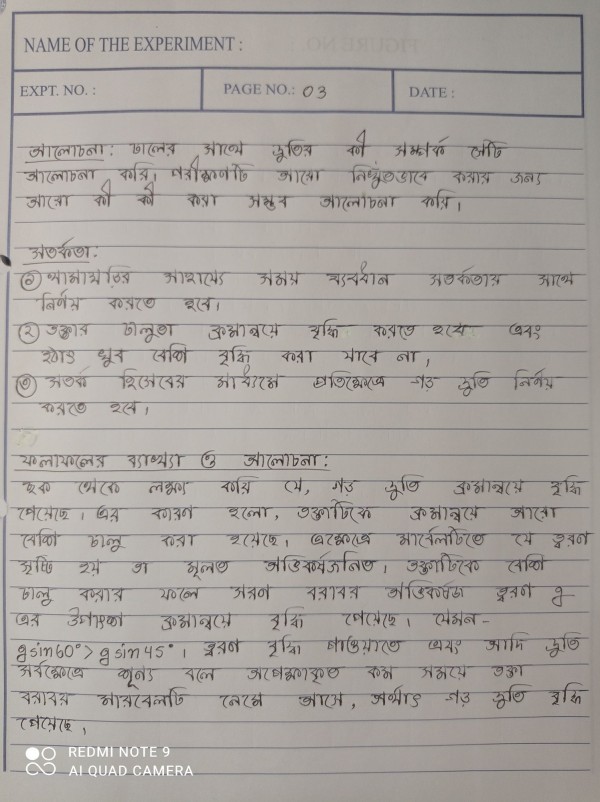 NAME OF THE EXPERIMENT :
EXPT. NO. :
PAGE NO.: 03
DATE :
আলোচনা: ঢালের সাথে দ্রুতির কী সম্পর্ক সেটি
আলোচনা করি। পরীক্ষণটি আরো নিখুঁতভাবে করার জন্য
আরো কী কী করা সম্ভব আলোচনা করি।
সতর্কতা:
① থামাঘড়ির সাহায্যে সময় ব্যবধান সতর্কতার সাথে
নির্ণয় করতে হবে।
② তক্তার ঢালুতা ক্রমান্বয়ে বৃদ্ধি করতে হবে এবং
হঠাৎ খুব বেশি বৃদ্ধি করা যাবে না।
③ সতর্ক হিসেবের মাধ্যমে প্রতিক্ষেত্রে গড় দ্রুতি নির্ণয়
করতে হবে।
ফলাফলের ব্যাখ্যা ও আলোচনা:
ছক থেকে লক্ষ্য করি যে, গড় দ্রুতি ক্রমান্বয়ে বৃদ্ধি
পেয়েছে। এর কারণ হলো, তক্তাটিকে ক্রমান্বয়ে আরো
বেশি ঢালু করা হয়েছে। এক্ষেত্রে মার্বেলটিতে যে ত্বরণ
সৃষ্টি হয় তা মূলত অভিকর্ষজনিত। তক্তাটিকে বেশি
ঢালু করার ফলে সরণ বরাবর অভিকর্ষজ ত্বরণ g
এর উপাংশ ক্রমান্বয়ে বৃদ্ধি পেয়েছে। যেমন-
g sin 60° > g sin 45°। ত্বরণ বৃদ্ধি পাওয়াতে এবং আদি দ্রুতি
সর্বক্ষেত্রে শূন্য বলে অপেক্ষাকৃত কম সময়ে তক্তা
বরাবর মারবেলটি নেমে আসে, অর্থাৎ গড় দ্রুতি বৃদ্ধি
পেয়েছে।
REDMI NOTE 9
AI QUAD CAMERA